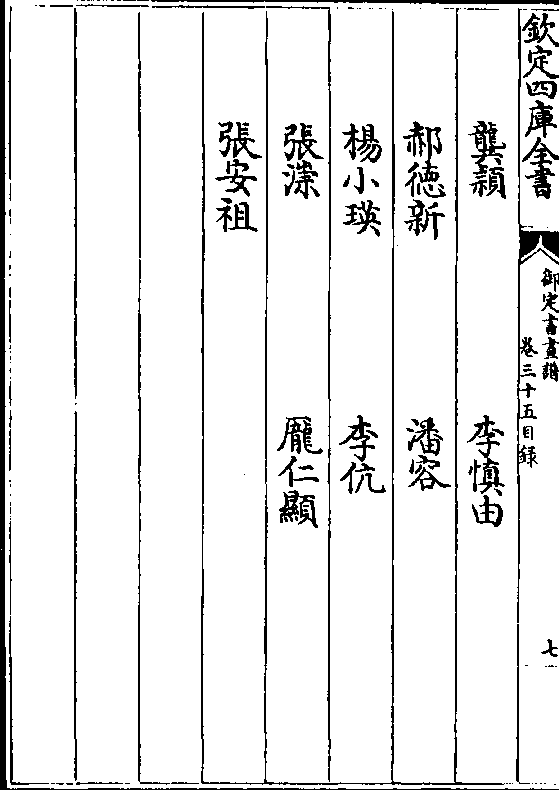 欽定四庫全書
御定書畫譜
卷三十五目録
七
龔頴 李慎由
郝德新 潘容
楊小瑛 李伉
張濴 龎仁顯
張安祖